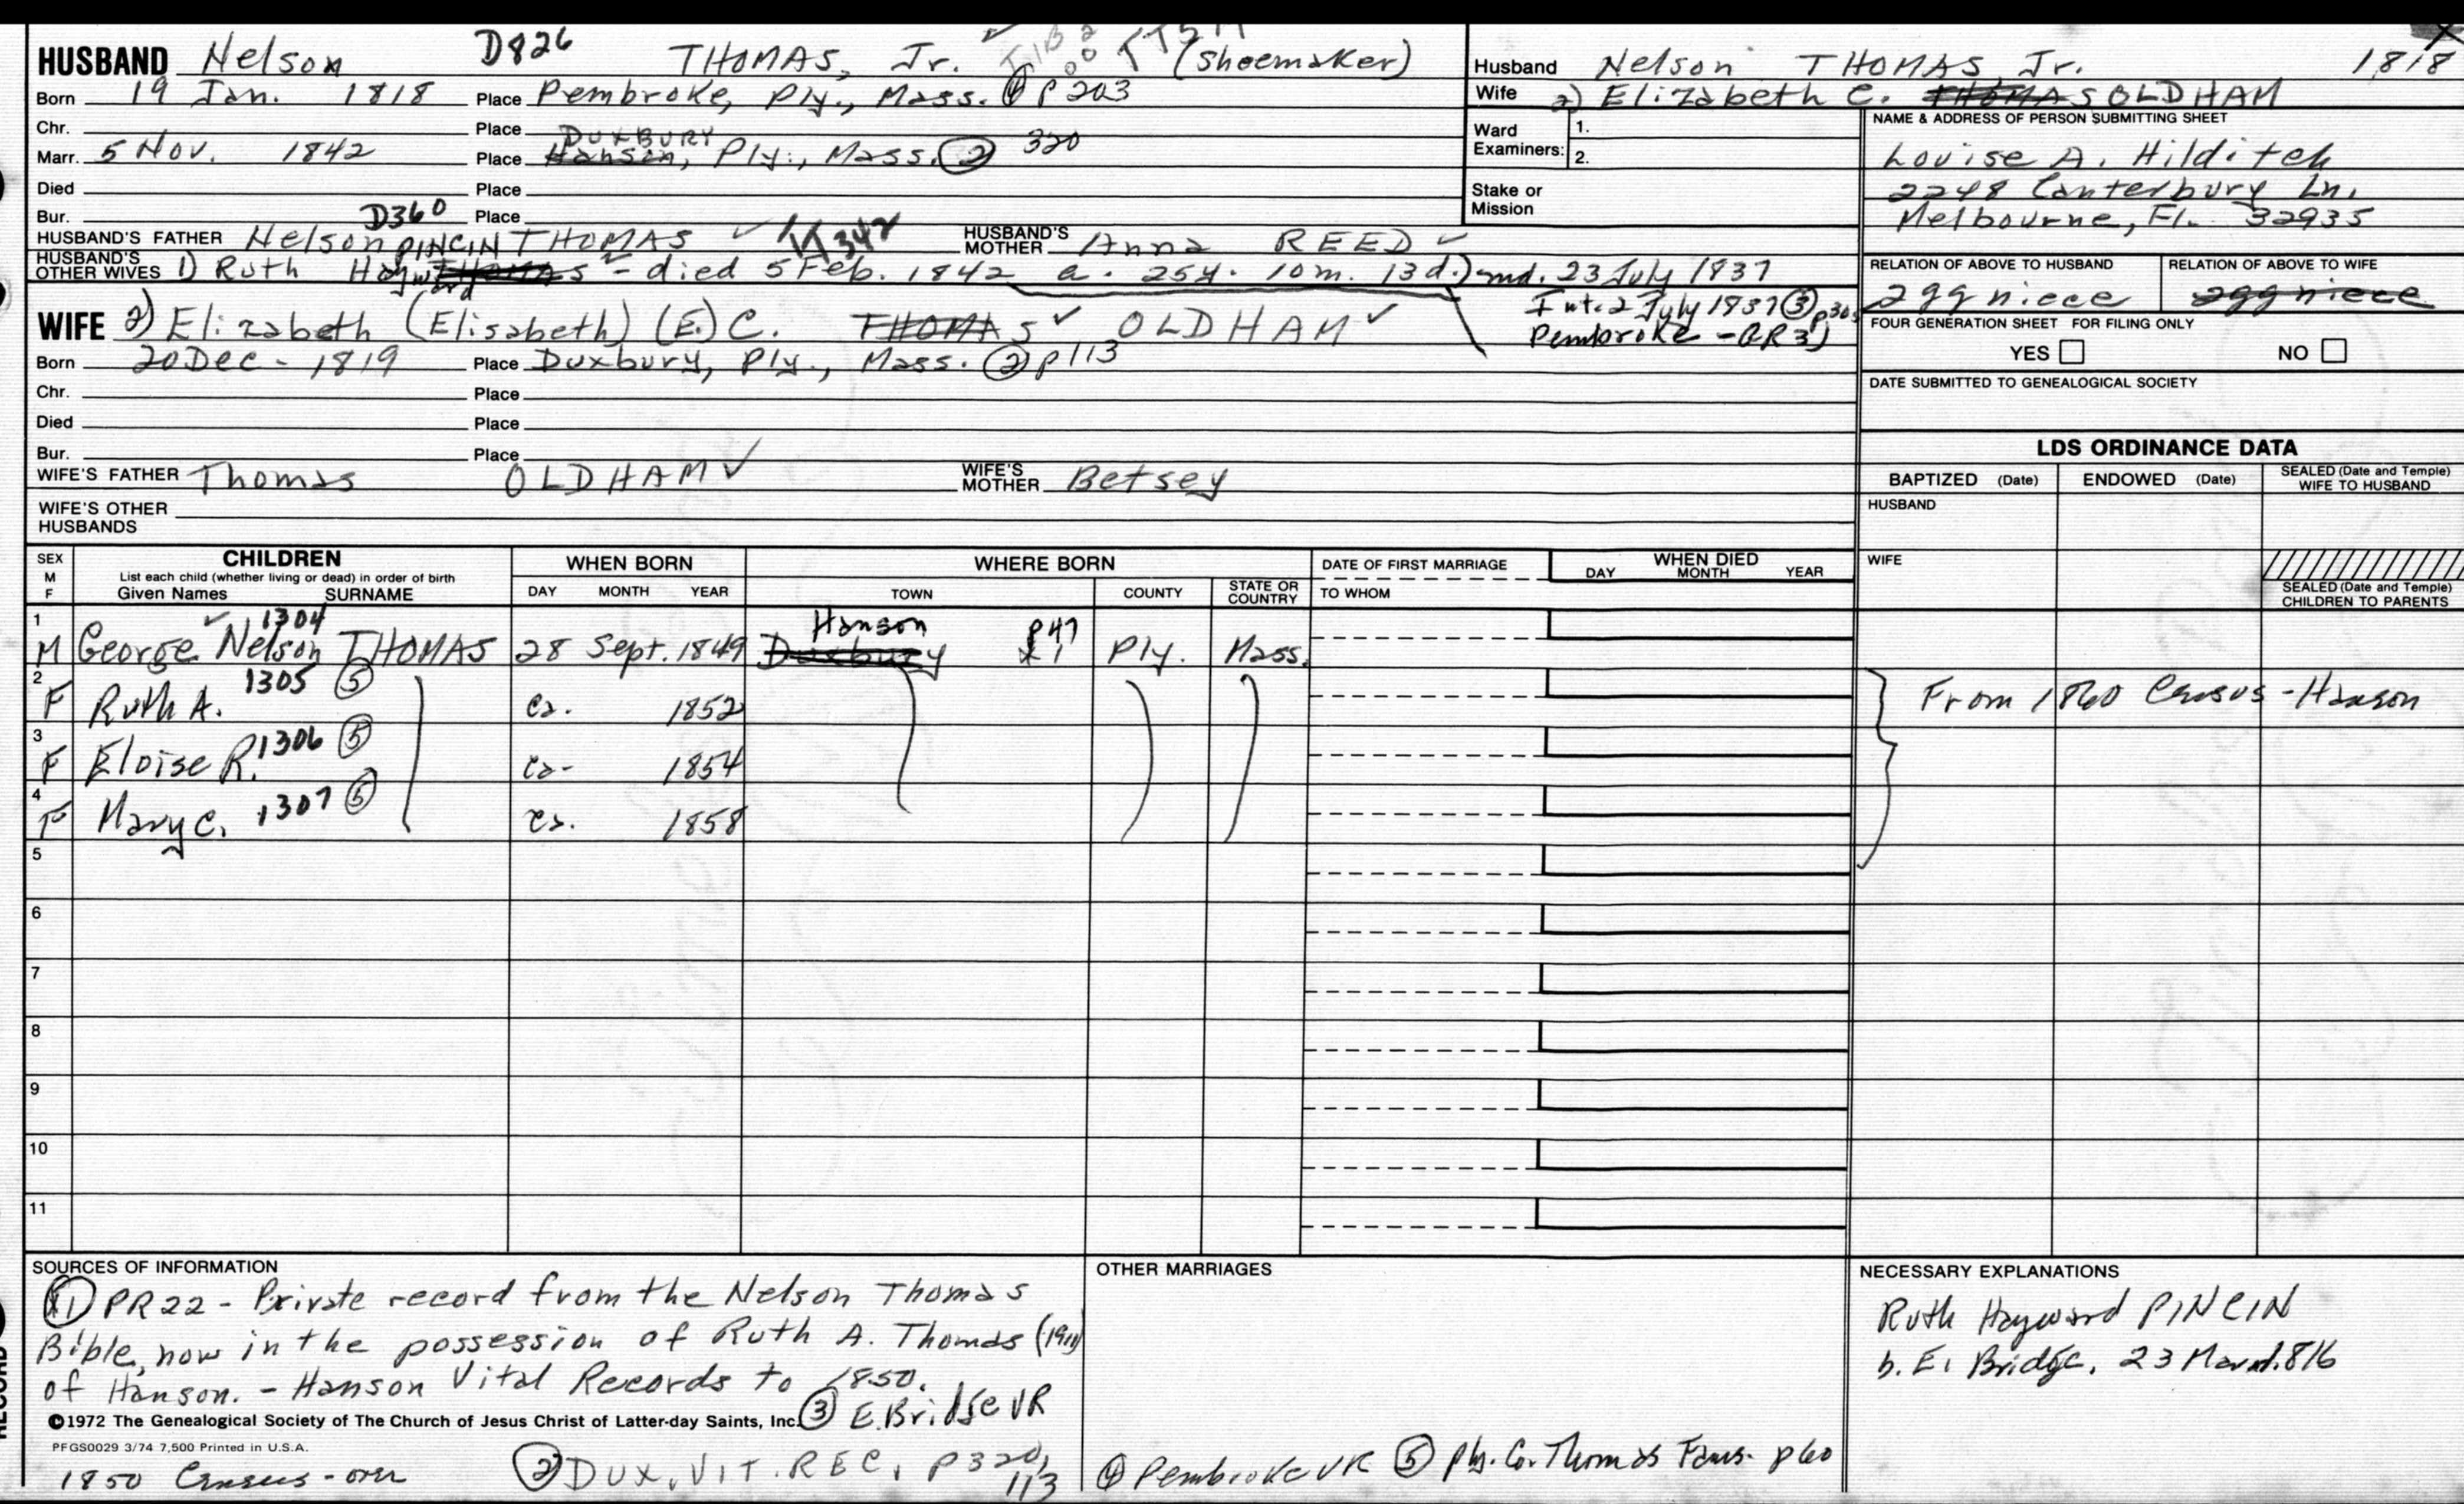 HUSBAND Nelson D826 THOMAS, Jr. (shoemaker)
Born 19 Jan. 1818 Place Pembroke, Ply., Mass. ④ p 203
Chr. Place
DUXBURY
Marr. 5 Nov. 1842 Place Hanson, Ply., Mass. ② 320
Died Place
Bur. Place
D360
HUSBAND'S FATHER Nelson THOMAS ✓ HUSBAND'S MOTHER Anna REED ✓
PINCIN
HUSBAND'S OTHER WIVES 1) Ruth Hayward THOMAS - died 5 Feb. 1842 a. 25y. 10m. 13d.) md. 23 July 1837
Int. 2 July 1837 ③
Pembroke - GR3)
WIFE 2) Elizabeth (Elisabeth) (E.) C. THOMAS ✓ OLDHAM ✓
Born 20 Dec - 1819 Place Duxbury, Ply., Mass. ② p 113
Chr. Place
Died Place
Bur. Place
WIFE'S FATHER Thomas OLDHAM ✓ WIFE'S MOTHER Betsey
WIFE'S OTHER HUSBANDS
Husband Nelson THOMAS, Jr. 1818
Wife 2) Elizabeth C. THOMAS OLDHAM
Ward Examiners: 1.
2.
Stake or Mission
NAME & ADDRESS OF PERSON SUBMITTING SHEET
Louise A. Hilditch
2248 Canterbury Ln.
Melbourne, Fl. 32935
RELATION OF ABOVE TO HUSBAND RELATION OF ABOVE TO WIFE
2ggniece 2ggniece
FOUR GENERATION SHEET FOR FILING ONLY
YES NO
DATE SUBMITTED TO GENEALOGICAL SOCIETY
LDS ORDINANCE DATA
BAPTIZED (Date) ENDOWED (Date) SEALED (Date and Temple) WIFE TO HUSBAND
HUSBAND
WIFE
SEALED (Date and Temple) CHILDREN TO PARENTS
SEX M F CHILDREN WHEN BORN WHERE BORN DATE OF FIRST MARRIAGE WHEN DIED
List each child (whether living or dead) in order of birth
Given Names SURNAME DAY MONTH YEAR TOWN COUNTY STATE OR COUNTRY TO WHOM DAY MONTH YEAR
1 1304 Hanson p47
M George Nelson THOMAS 28 Sept. 1849 Duxbury Ply. Mass.
2 1305 ⑤
F Ruth A. ca. 1852 From 1860 Census - Hanson
3 1306 ⑤
F Eloise R. ca- 1854
4 1307 ⑤
F Mary C. ca. 1858
5
6
7
8
9
10
11
SOURCES OF INFORMATION
① PR22 - Private record from the Nelson Thomas
Bible, now in the possession of Ruth A. Thomas (1911)
of Hanson. - Hanson Vital Records to 1850.
③ E. Bridge VR
©1972 The Genealogical Society of The Church of Jesus Christ of Latter-day Saints, Inc.
PFGS0029 3/74 7,500 Printed in U.S.A.
1850 Census - over ② DUX. VIT. REC, p320, 113
OTHER MARRIAGES
④ Pembroke VR ⑤ Ply. Co. Thomas Fams. p 60
NECESSARY EXPLANATIONS
Ruth Hayward PINCIN
b. E. Bridge, 23 March 1816